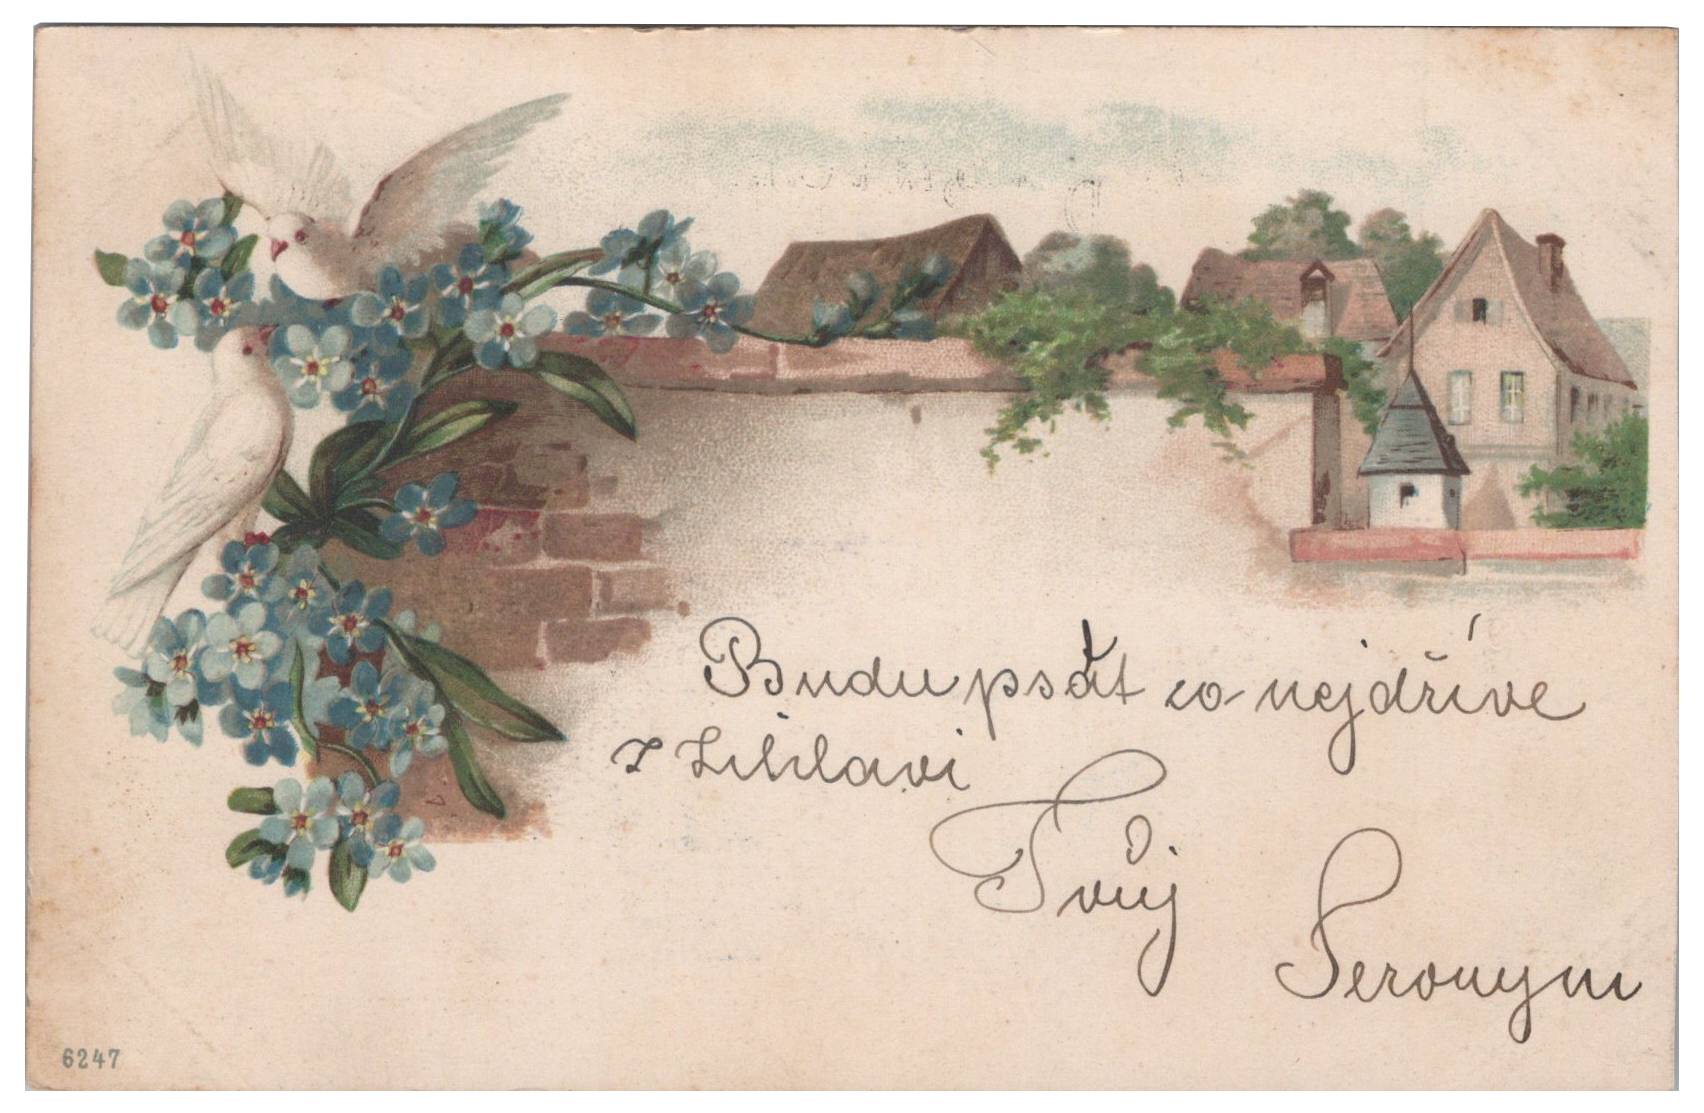 Budu psát co nejdříve
z Jihlavi
Tvůj
Jeronym
6247